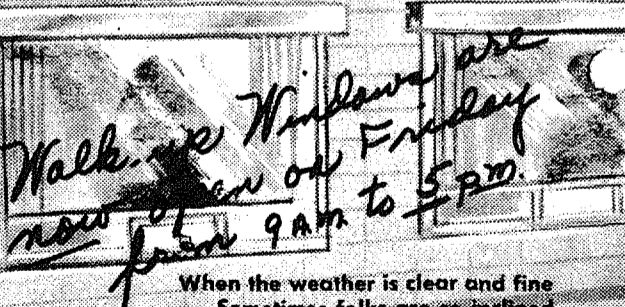 Walk-up Windows are
now open on Friday
from 9 AM to 5 pm.
When the weather is clear and fine
Sometimes folks are